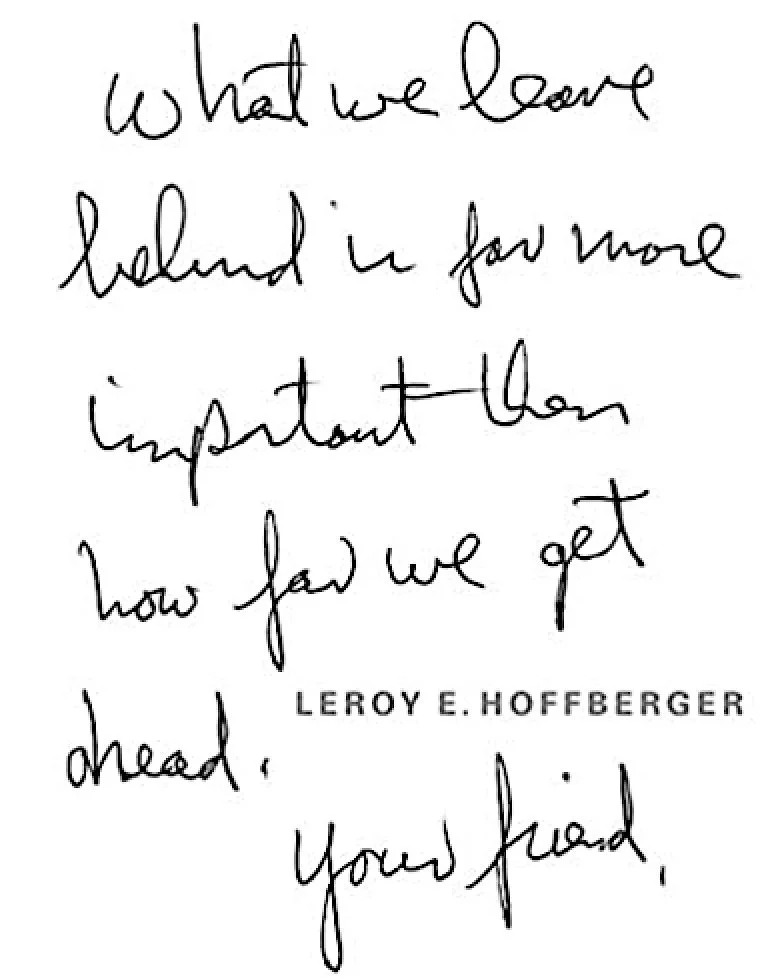 what we leave
behind is far more
important than
how far we get
ahead.
LEROY E. HOFFBERGER
your friend,